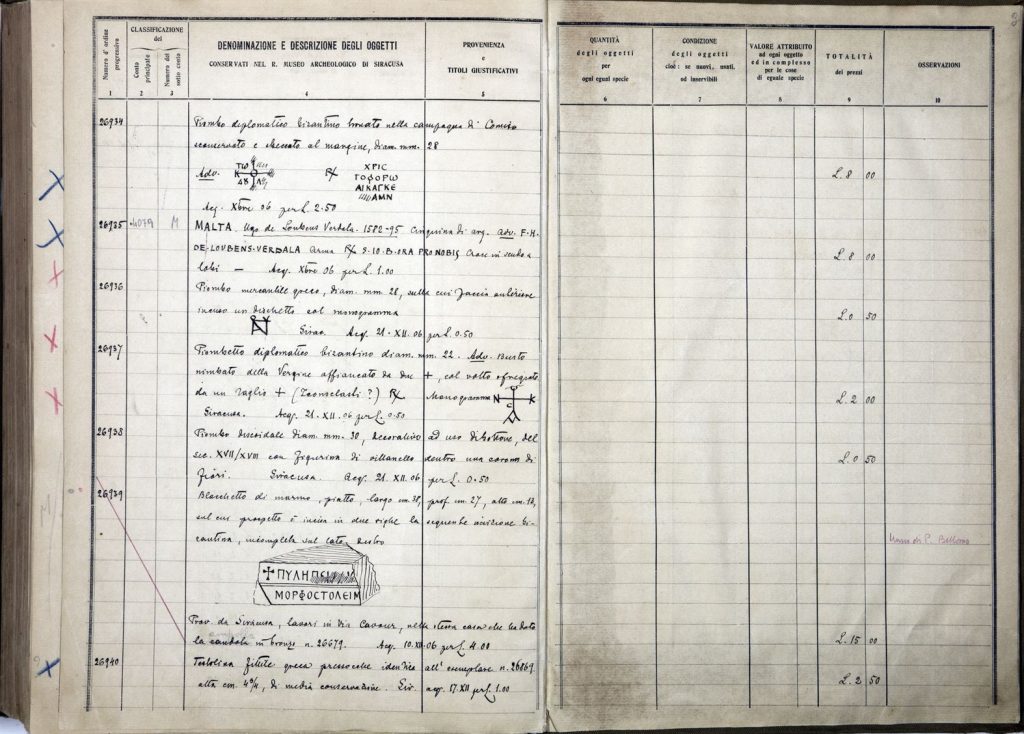 Numero d'ordine progressivo
CLASSIFICAZIONE
del
Conto principale
Numero del sotto conto
DENOMINAZIONE E DESCRIZIONE DEGLI OGGETTI
CONSERVATI NEL R. MUSEO ARCHEOLOGICO DI SIRACUSA
PROVENIENZA
e
TITOLI GIUSTIFICATIVI
QUANTITÀ
degli oggetti
per
ogni egual specie
CONDIZIONE
degli oggetti
cioè: se nuovi, usati,
od inservibili
VALORE ATTRIBUITO
ad ogni oggetto
ed in complesso
per le cose
di eguale specie
TOTALITÀ
dei prezzi
OSSERVAZIONI
1 2 3 4 5 6 7 8 9 10
26934 Piombo diplomatico bizantino trovato nella campagna di Comiso
sconservato e sbeccato al margine, diam. mm. 28
Adv. ΧΡΙC
ΓΟΦΟΡω
ΑΙΚΑΓΚΕ
ΑΜΝ
L. 8 00
Acq. Xbre 06 per L. 2.50
26935 4079 M MALTA Ugo de Loubens Verdala. 1582-95 Cinquina di arg. Adv. F. H.
DE. LOUBENS. VERDALA Arma S. IO. B. ORA PRO NOBIS Croce in scudo a
L. 8 00
lobi — Acq. Xbre 06 per L. 1.00
26936 Piombo mercantile greco, diam. mm 28, sulla cui faccia anteriore
incuso un dischetto col monogramma
L. 0 50
Sirac. Acq. 21. XII. 06 per L. 0.50
26937 Piombetto diplomatico bizantino diam. mm. 22. Adv. Busto
nimbato della Vergine affiancato da due +, col volto sfregiato
da un taglio + (Iconoclasti?) Monogramma
L. 2 00
Siracusa. Acq. 21. XII. 06 per L. 0.50
26938 Piombo discoidale diam. mm. 30, decorativo ad uso di bottone, del
sec. XVII/XVIII con figurina di villanello dentro una corona di
L. 0 50
fiori. Siracusa. Acq. 21 XII. 06 per L. 0.50
26939 Blocchetto di marmo, piatto, largo cm. 38, prof. cm. 27, alto cm. 18,
sul cui prospetto è incisa in due righe la seguente iscrizione bi-
zantina, incompleta sul lato destro
ΠΥΛΗΠΕ
ΜΟΡΦΟCΤΟΛΕΙΜ
Prov. da Siracusa, lavori in Via Cavour, nella stessa casa che ha dato
la candela in bronzo n. 26679. Acq. 10. XII. 06 per L. 4.00
L. 15 00
26940 Testolina fittile greca pressoché identica all'esemplare n. 26869.
alta cm. 4 3/4, di media conservazione. Sir. acq. 17. XII per L. 1.00
L. 2 50